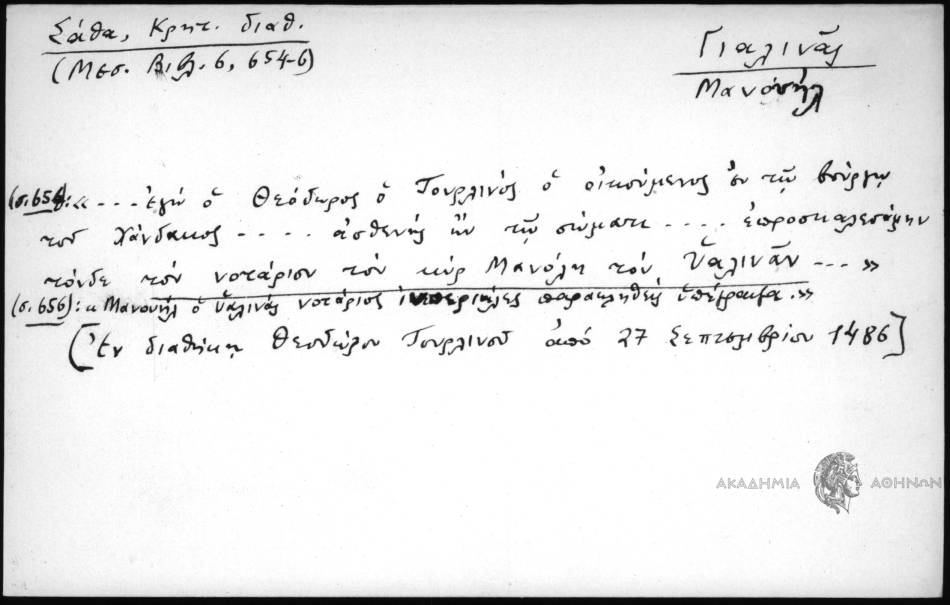 Σάθα, Κρητ. διαθ.
(Μεσ. Βιβλ. 6, 654-6)
Γιαλινᾶς
Μανουήλ
(σ. 654): «... Ἐγώ ὁ Θεόδωρος ὁ Τουρλινός ὁ οἰκούμενος ἐν τῷ βούργω
τοῦ Χάνδακος .... ἀσθενής ὤν τῷ σώματι .... ἐπροσκαλεσάμην
τόνδε τόν νοτάριον τόν κύρ Μανόλη τόν Ὑαλινᾶν ... »
(σ. 656): « Μανουήλ ὁ Ὑαλινᾶς νοτάριος παρακληθείς ὑπέγραψα.»
[Ἐν διαθήκῃ Θεοδώρου Τουρλινοῦ ἀπό 27 Σεπτεμβρίου 1486]
ΑΚΑΔΗΜΙΑ ΑΘΗΝΩΝ